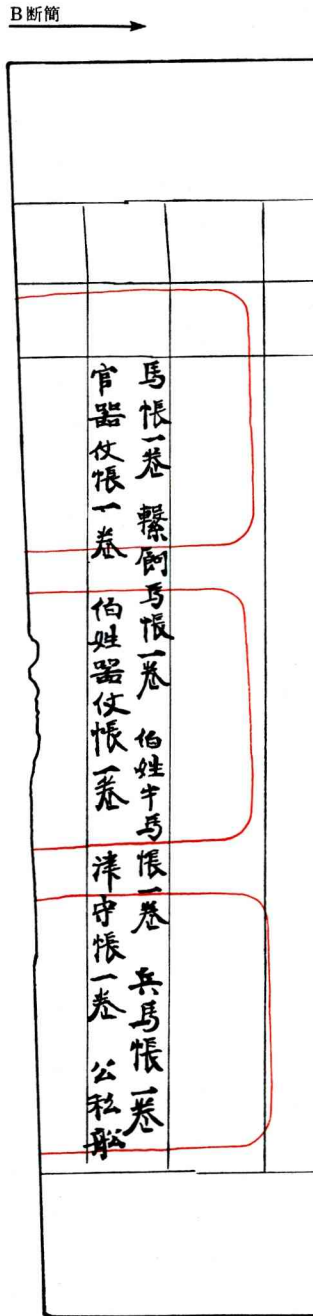 B断簡
馬帳一巻 繋飼馬帳一巻 伯姓牛馬帳一巻 兵馬帳一巻
官器仗帳一巻 伯姓器仗帳一巻 津守帳一巻 公私船